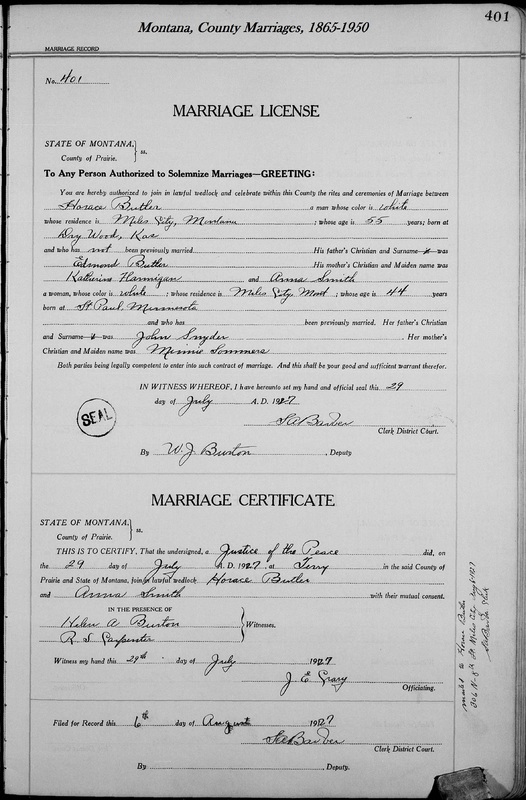 401
Montana, County Marriages, 1865-1950
MARRIAGE RECORD
No. 401
MARRIAGE LICENSE
STATE OF MONTANA, } ss.
County of Prairie.
To Any Person Authorized to Solemnize Marriages—GREETING:
You are hereby authorized to join in lawful wedlock and celebrate within this County the rites and ceremonies of Marriage between
Horace Butler a man whose color is white
whose residence is Miles City, Montana ; whose age is 55 years; born at
Dry Wood, Kas
and who has not been previously married His father's Christian and Surname is was
Edmond Butler His mother's Christian and Maiden name was
Katherine Hannigan and Anna Smith
a woman, whose color is white ; whose residence is Miles City, Mont ; whose age is 44 years
born at St Paul, Minnesota
and who has been previously married. Her father's Christian
and Surname is was John Snyder . Her mother's
Christian and Maiden name was Minnie Sommers
Both parties being legally competent to enter into such contract of marriage. And this shall be your good and sufficient warrant therefor.
IN WITNESS WHEREOF, I have hereunto set my hand and official seal this 29
day of July A. D. 1927
SEAL
S A Barber
Clerk District Court.
By W. J. Burton , Deputy
MARRIAGE CERTIFICATE
STATE OF MONTANA, } ss.
County of Prairie.
THIS IS TO CERTIFY, That the undersigned, a Justice of the Peace did, on
the 29 day of July A. D. 1927 at Terry in the said County of
Prairie and State of Montana, join in lawful wedlock Horace Butler
and Anna Smith with their mutual consent.
IN THE PRESENCE OF
Helen A Burton
R. S. Carpenter } Witnesses.
Witness my hand this 29th day of July 1927
J. E. Gary
Officiating.
Filed for Record this 6th day of August 1927
S A Barber
Clerk District Court.
By , Deputy.
mailed to Horace Butler
306 N. 8th St. Miles City 1927
S A Barber Clerk